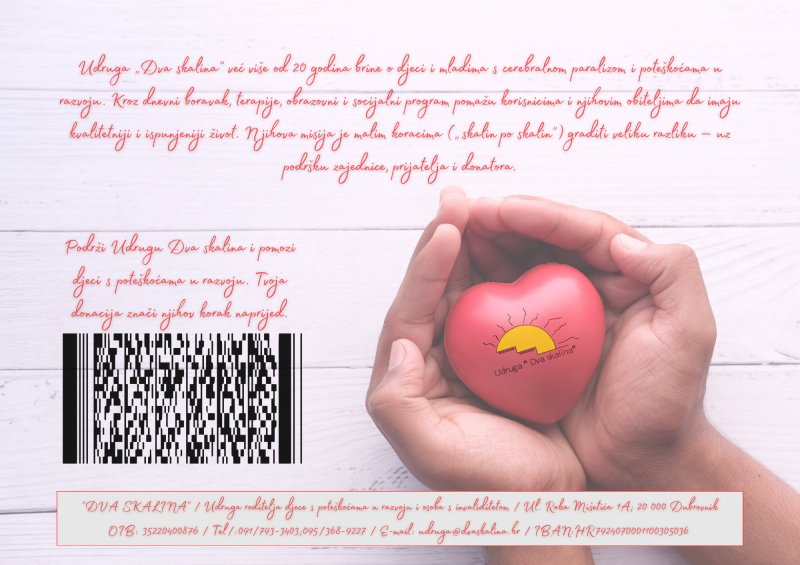 Udruga „Dva skalina“ već više od 20 godina brine o djeci i mladima s cerebralnom paralizom i poteškoćama u
razvoju. Kroz dnevni boravak, terapije, obrazovni i socijalni program pomažu korisnicima i njihovim obiteljima da imaju
kvalitetniji i ispunjeniji život. Njihova misija je malim koracima („skalin po skalin“) graditi veliku razliku – uz
podršku zajednice, prijatelja i donatora.
Podrži Udrugu Dva skalina i pomozi
djeci s poteškoćama u razvoju. Tvoja
donacija znači njihov korak naprijed.
Udruga " Dva skalina"
"DVA SKALINA" / Udruga roditelja djece s poteškoćama u razvoju i osoba s invaliditetom / Ul. Roka Mišetića 1A; 20 000 Dubrovnik
OIB: 35220400876 / Tel/:091/793-3403;095/368-9227 / E-mail: udruga@dvaskalina.hr / IBAN:HR7924070001100305036